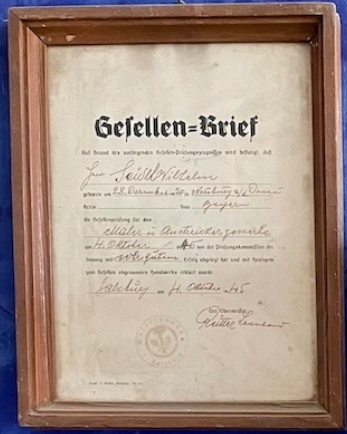 Gesellen=Brief
Auf Grund des vorliegenden Gesellen-Prüfungszeugnisses wird bestätigt, daß
Herr Seidl Wilhelm
geboren am 28. Dezember 20 in Neuburg a/d Donau
Kreis Gau Bayern
die Gesellenprüfung für das
Maler u Anstreichergewerbe
am 4. Oktober 45 vor der Prüfungskommission der
Innung mit sehr gutem Erfolg abgelegt hat und mit Heutigem
zum Gesellen des genannten Handwerks erklärt wurde
Salzburg am 4. Oktober 45
Der Obermeister